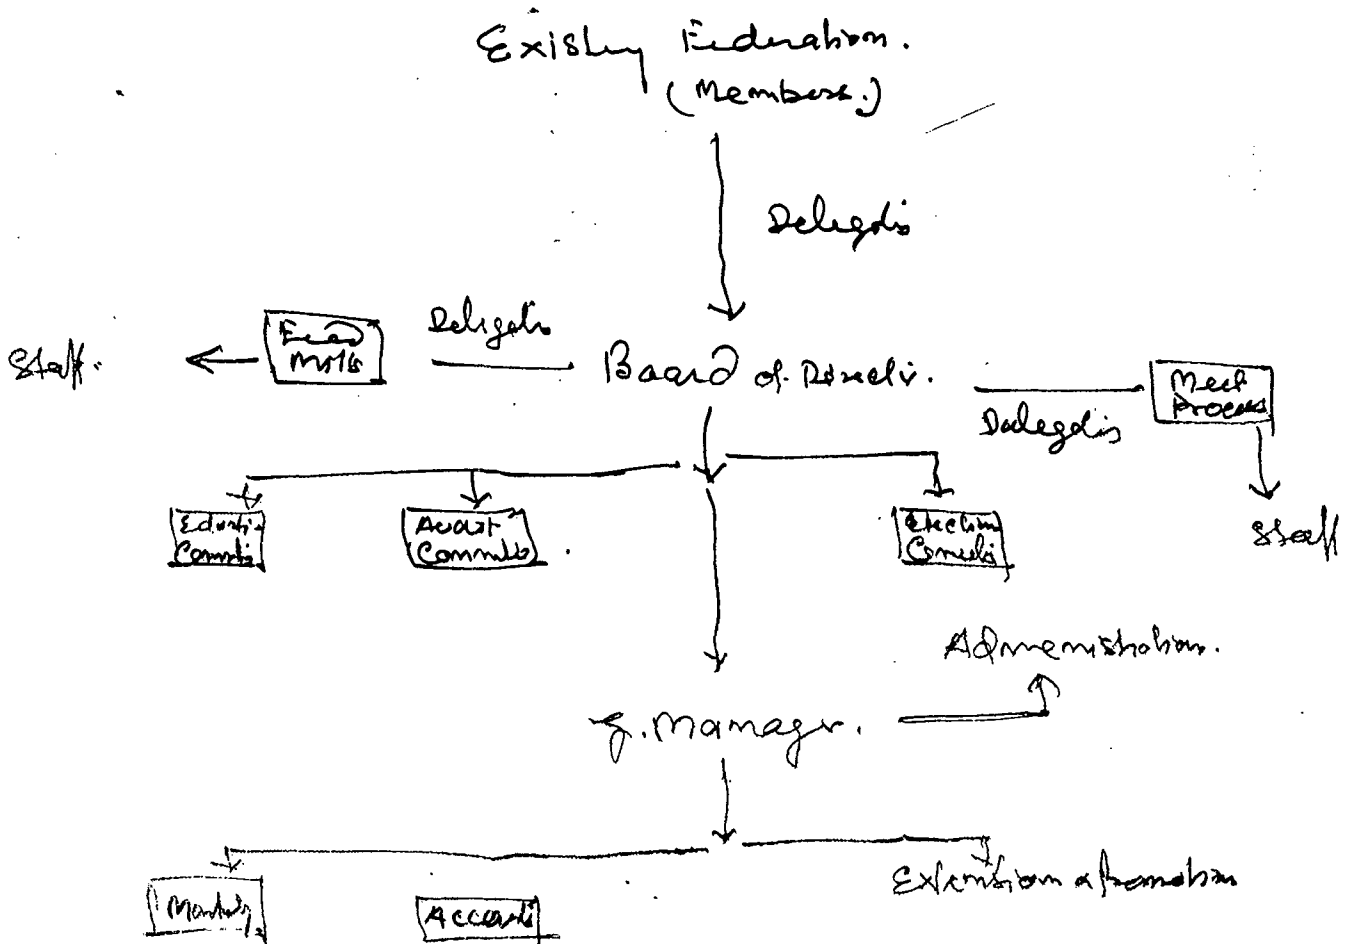 Existing Federation.
(Members.)
Delegates
Staff.
Feed
Mills
Delegates
Board of Director.
Delegates
Meat
Process
Staff
Education
Committee
Audit
Committee
Election
Committee
Administration.
G. Manager.
Marketing
Accounts
Extension & Promotion